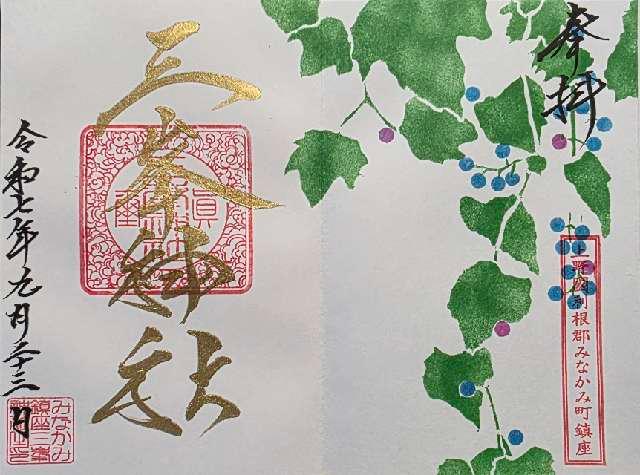 奉拝
上野国利根郡みなかみ町鎮座
三峯神社
令和七年九月二十三日
みなかみ
鎮座三峯